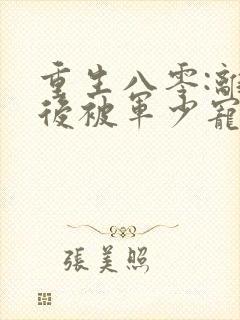 重生八零:離
後被軍少寵
張美照